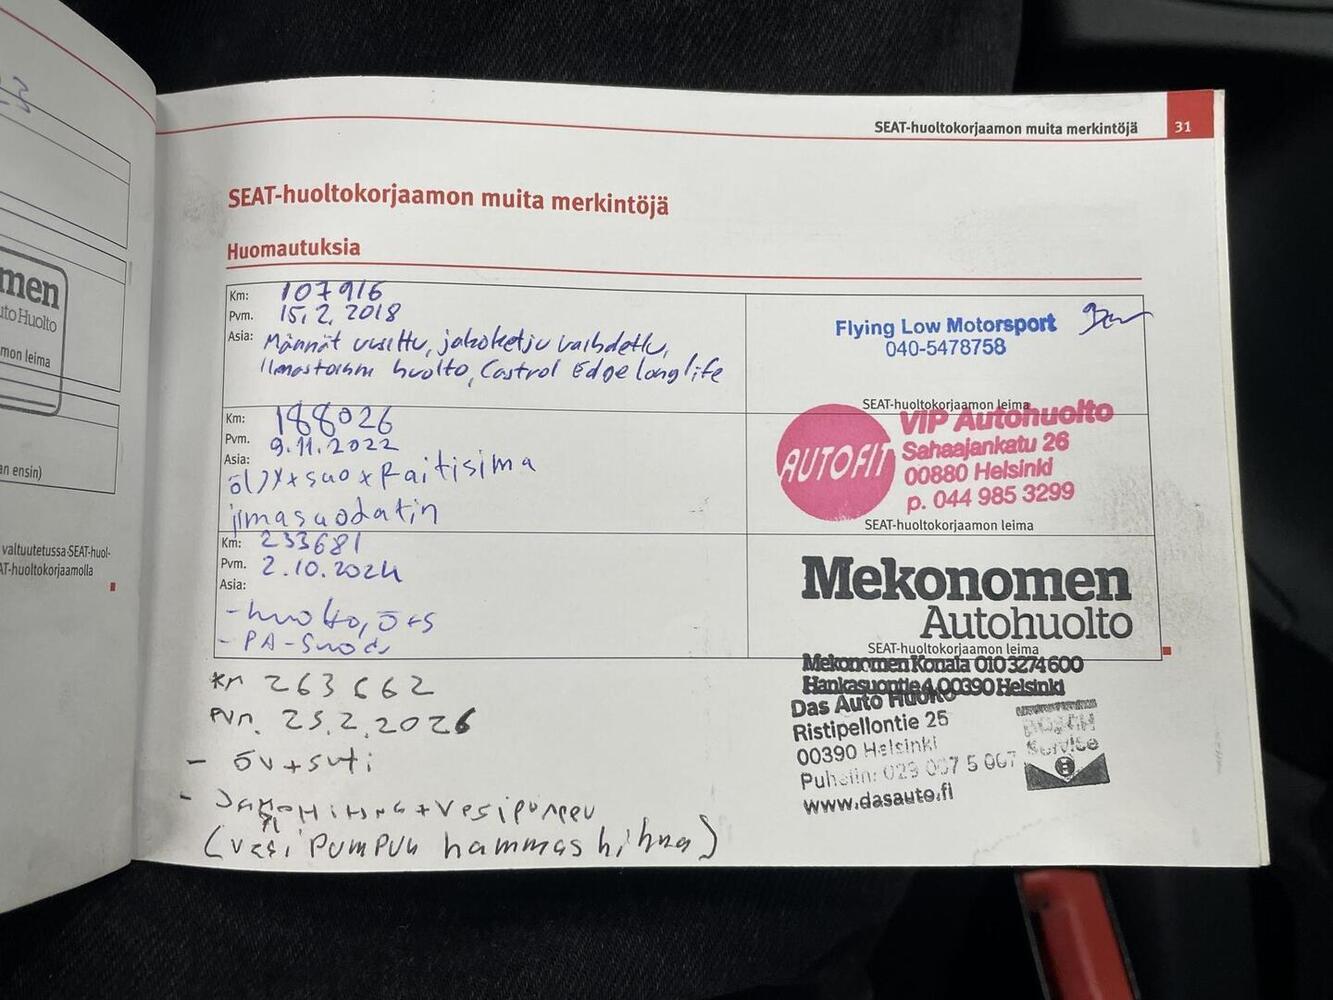 SEAT-huoltokorjaamon muita merkintöjä 31
SEAT-huoltokorjaamon muita merkintöjä
Huomautuksia
Km: 107916
Pvm. 15.2.2018
Asia: Männät uusittu, jakoketju vaihdettu,
Ilmastoinnin huolto, Castrol Edge longlife
Flying Low Motorsport
040-5478758
SEAT-huoltokorjaamon leima
Km: 188026
Pvm. 9.11.2022
Asia:
öljy+suo+Raitisima
ilmasuodatin
AUTOFIT
VIP Autohuolto
Sahaajankatu 26
00880 Helsinki
p. 044 985 3299
SEAT-huoltokorjaamon leima
Km: 233681
Pvm. 2.10.2024
Asia:
- huolto, ö+s
- PA-Suod
Mekonomen
Autohuolto
SEAT-huoltokorjaamon leima
Mekonomen Konala 010 3274600
Hankasuontie 4 00390 Helsinki
Km 263662
Pvm. 25.2.2026
- öv+suti
- +vesipumppu
(vesipumpun hammashihna)
Das Auto Huolto
Ristipellontie 25
00390 Helsinki
Puhelin: 029 007 5 007
www.dasauto.fi
BOSCH
Service
men
uto Huolto
mon leima
an ensin)
valtuutetussa SEAT-huol-
AT-huoltokorjaamolla